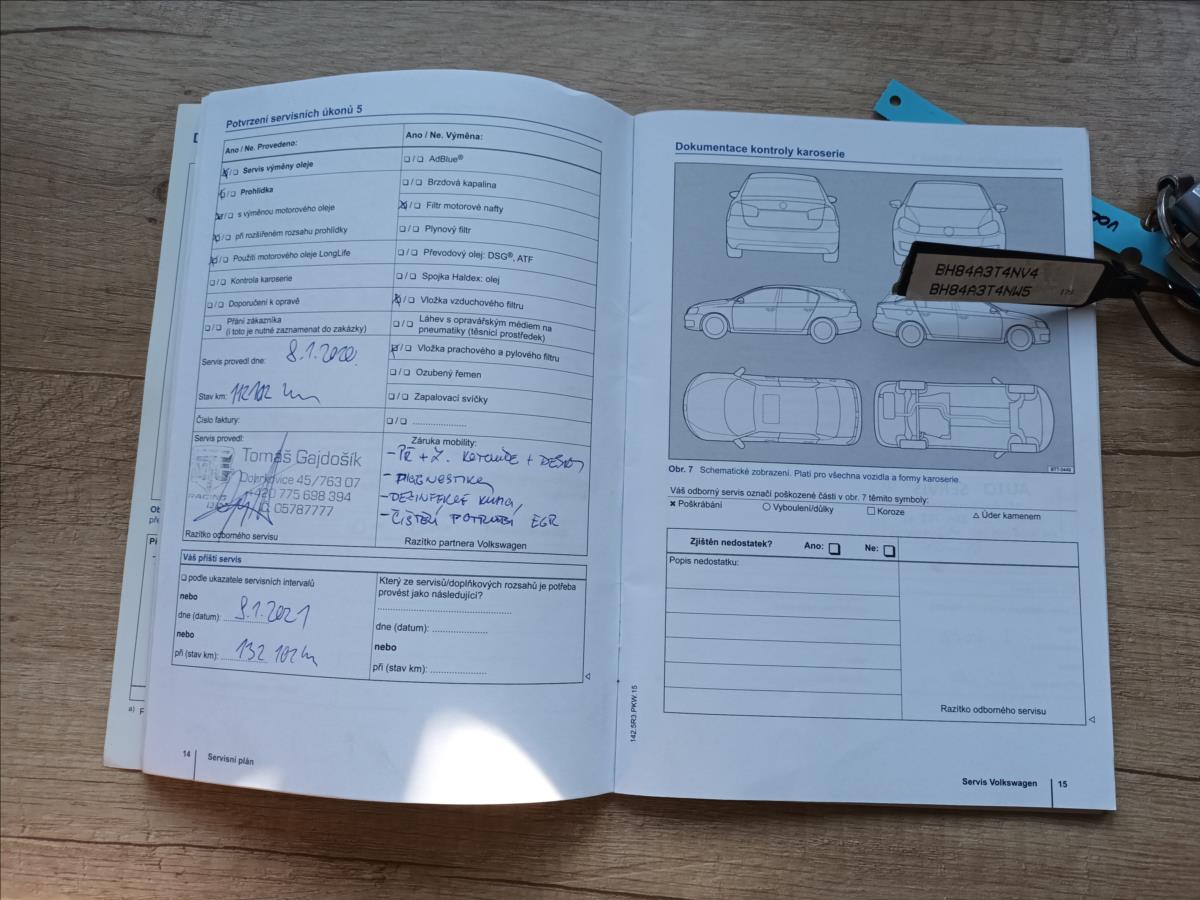 Potvrzení servisních úkonů 5
Ano / Ne. Provedeno:
❏ / ❏ Servis výměny oleje
❏ / ❏ Prohlídka
❏ / ❏ s výměnou motorového oleje
❏ / ❏ při rozšířeném rozsahu prohlídky
❏ / ❏ Použití motorového oleje LongLife
❏ / ❏ Kontrola karoserie
❏ / ❏ Doporučení k opravě
❏ / ❏ Přání zákazníka
(i toto je nutné zaznamenat do zakázky)
Servis provedl dne: 8.1.2020
Stav km: 112102 km
Číslo faktury:
Servis provedl:
Tomáš Gajdošík
45/763 07
+420 775 698 394
05787777
RACING
Razítko odborného servisu
Ano / Ne. Výměna:
❏ / ❏ AdBlue®
❏ / ❏ Brzdová kapalina
❏ / ❏ Filtr motorové nafty
❏ / ❏ Plynový filtr
❏ / ❏ Převodový olej: DSG®, ATF
❏ / ❏ Spojka Haldex: olej
❏ / ❏ Vložka vzduchového filtru
❏ / ❏ Láhev s opravářským médiem na
pneumatiky (těsnicí prostředek)
❏ / ❏ Vložka prachového a pylového filtru
❏ / ❏ Ozubený řemen
❏ / ❏ Zapalovací svíčky
❏ / ❏ ....................
Záruka mobility:
- PŘ + Z. KOTOUČE + DESKY
- DIAGNOSTIKA
- DEZINFEKCE KLIMA
- ČIŠTĚNÍ POTRUBÍ EGR
Razítko partnera Volkswagen
Váš příští servis
❏ podle ukazatele servisních intervalů
nebo
dne (datum): 8.1.2021
nebo
při (stav km): 132 102 km
Který ze servisů/doplňkových rozsahů je potřeba
provést jako následující?
dne (datum): ....................
nebo
při (stav km): ....................
a) F
14 Servisní plán
Dokumentace kontroly karoserie
BH84A3T4NV4
BH84A3T4NW5
Obr. 7 Schematické zobrazení. Platí pro všechna vozidla a formy karoserie.
Váš odborný servis označí poškozené části v obr. 7 těmito symboly:
✖ Poškrábání ○ Vyboulení/důlky □ Koroze △ Úder kamenem
Zjištěn nedostatek? Ano: ❏ Ne: ❏
Popis nedostatku:
Razítko odborného servisu
142.5R3.PKW.15
Servis Volkswagen 15